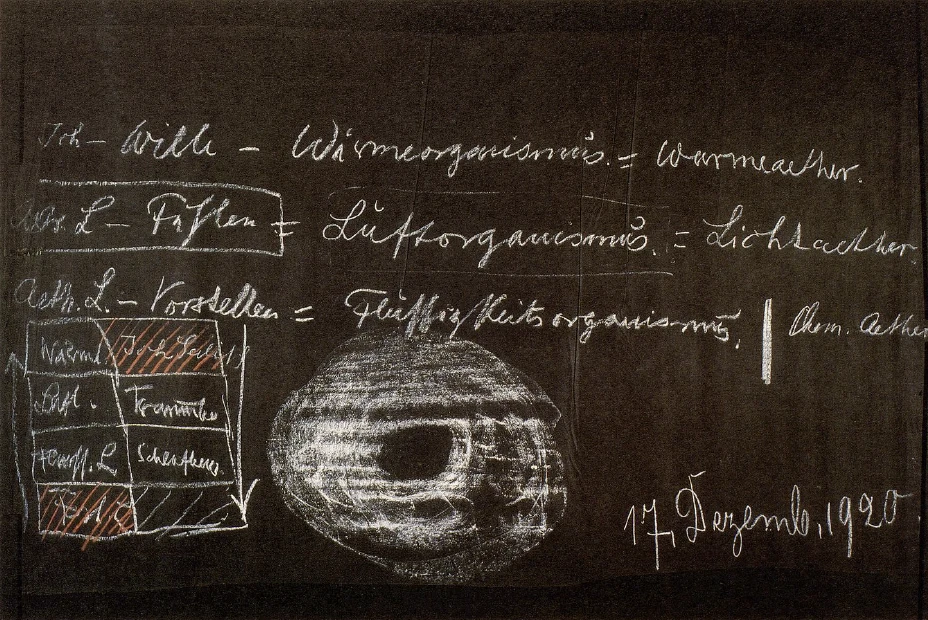 Ich – Wille – Wärmeorganismus. = Wärmeaether.
Astr. L – Fühlen = Luftorganismus. = Lichtaether.
Aeth. L. – Vorstellen = Flüssigkeitsorganismus. | Chem. Aether
Wärme
Luft.
17, Dezemb, 1920